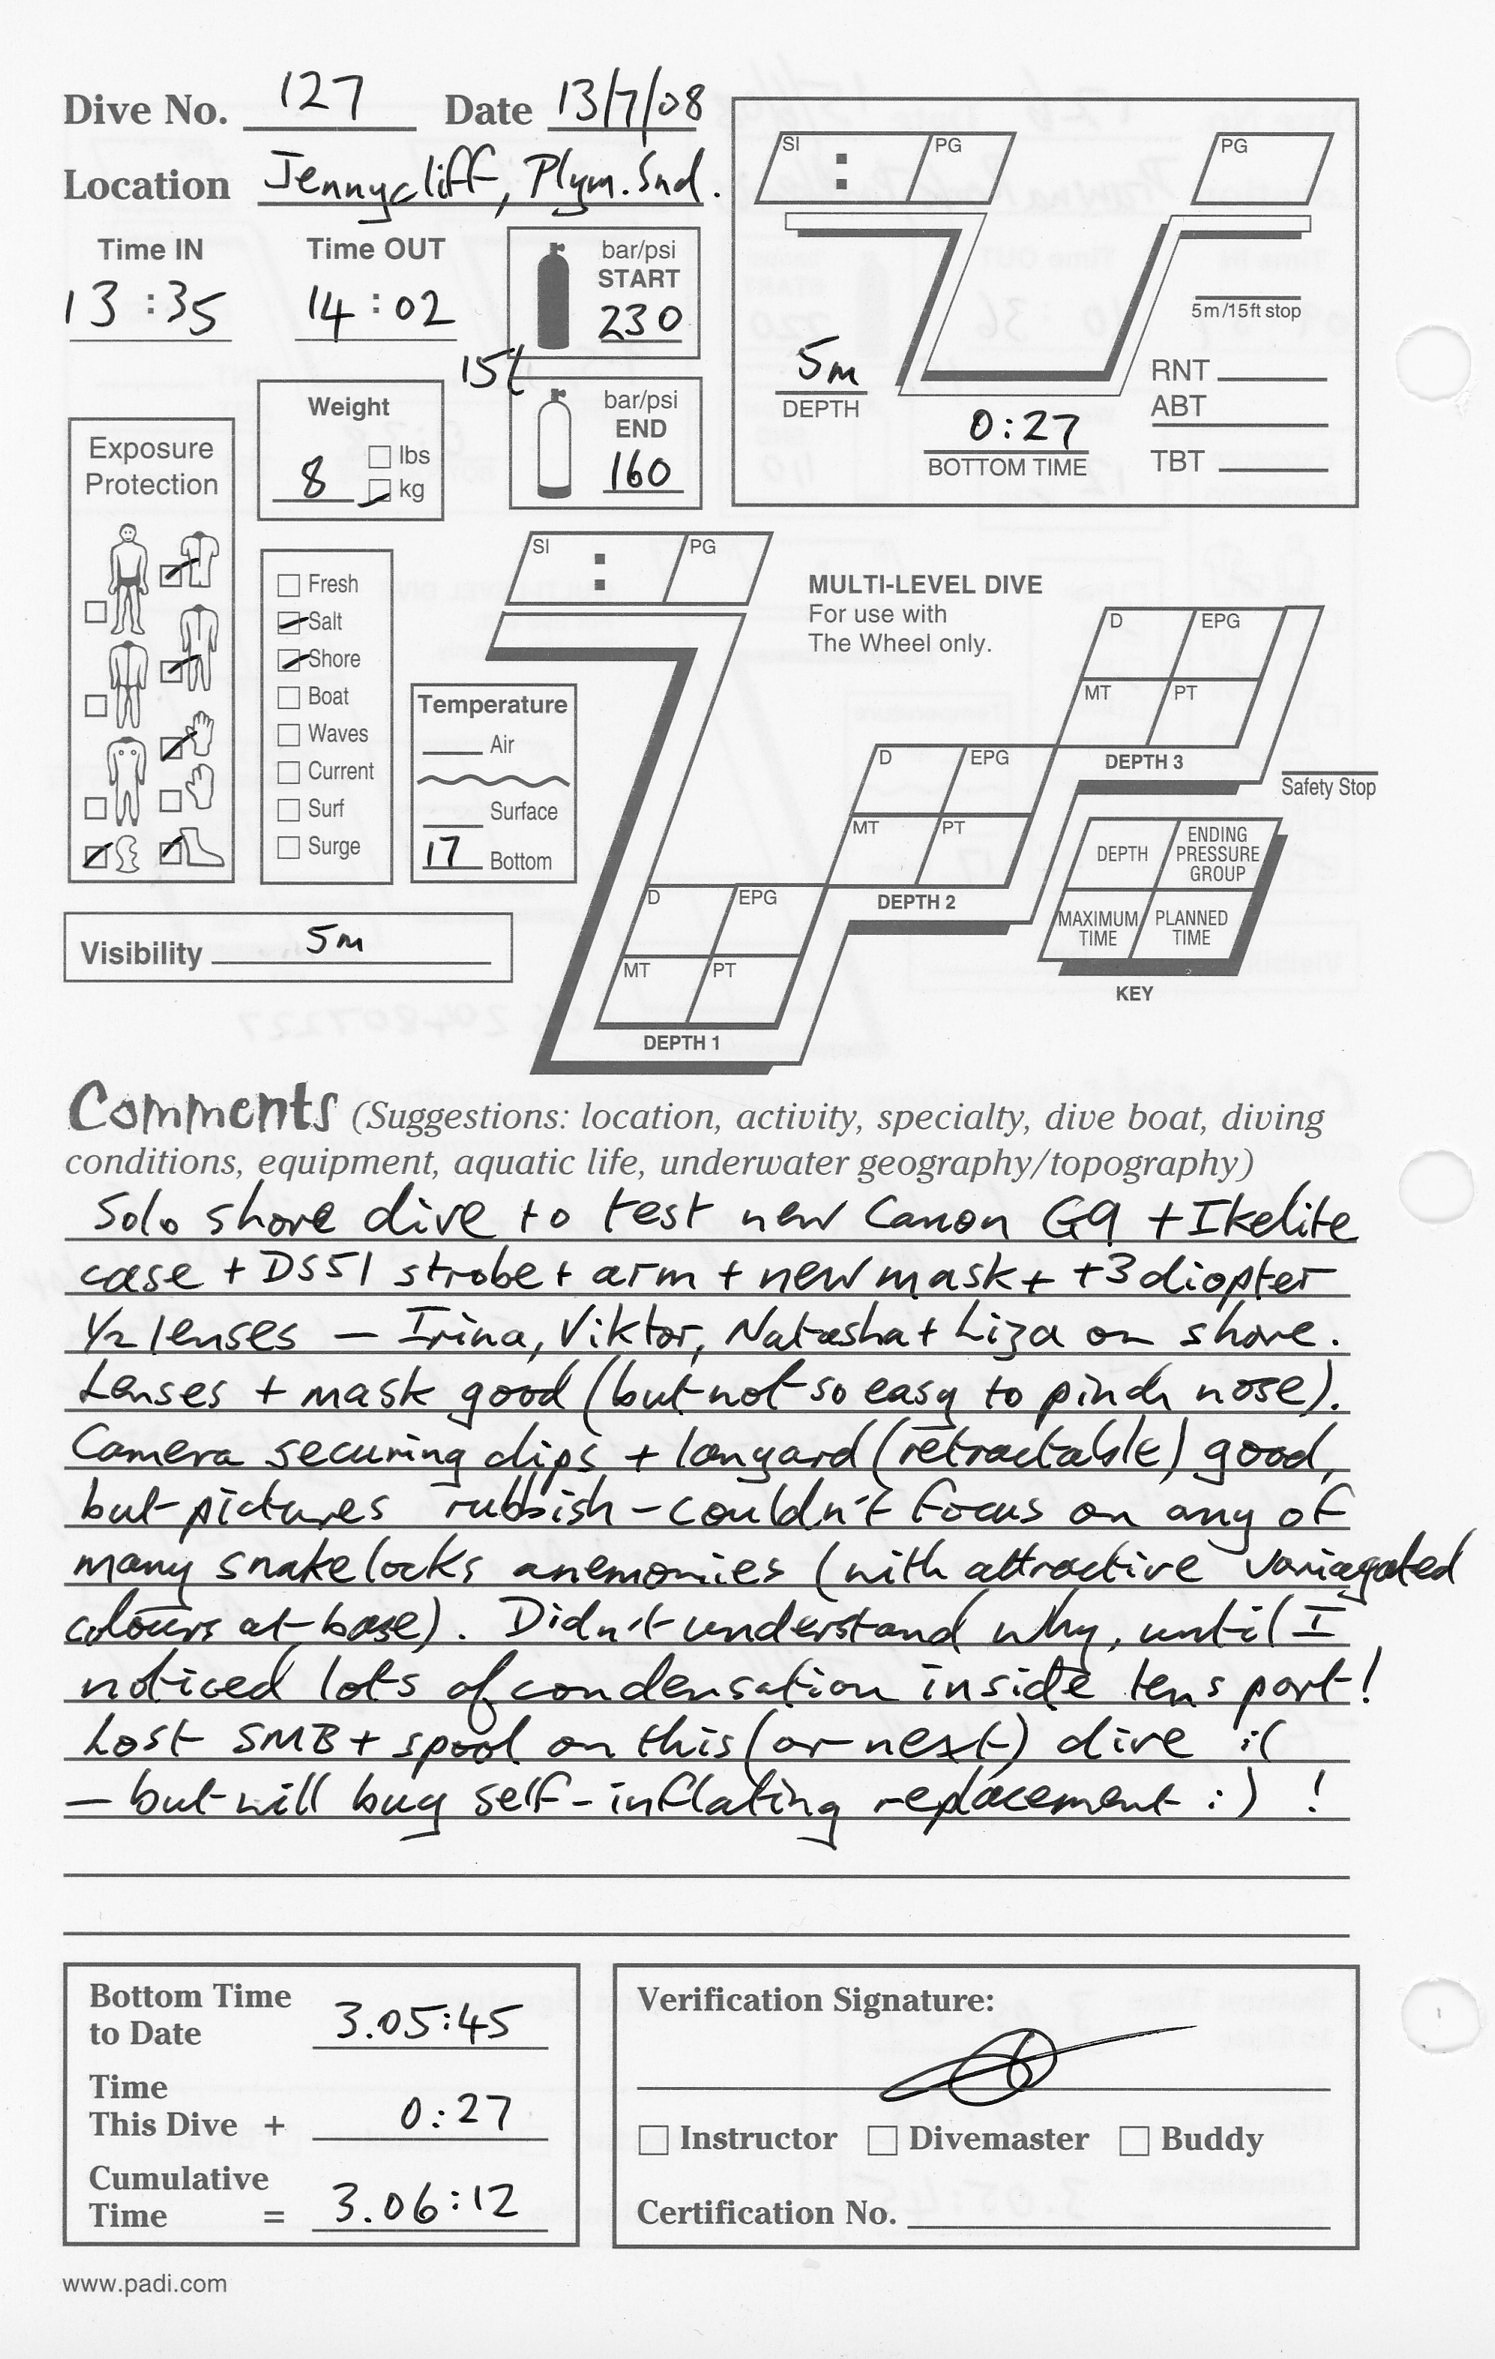 Dive No. 127 Date 13/7/08
Location Jennycliff, Plym. Snd.
SI : PG PG
Time IN Time OUT
13:35 14:02
bar/psi
START
230
15l
5m/15ft stop
5m
DEPTH
0:27
BOTTOM TIME
RNT
ABT
TBT
bar/psi
END
160
Weight
lbs
8 kg
Exposure
Protection
Fresh
Salt
Shore
Boat
Waves
Current
Surf
Surge
Temperature
Air
Surface
17 Bottom
Visibility 5m
SI : PG
MULTI-LEVEL DIVE
For use with
The Wheel only.
D EPG
MT PT
DEPTH 3
Safety Stop
D EPG
MT PT
DEPTH 2
D EPG
MT PT
DEPTH 1
DEPTH
ENDING
PRESSURE
GROUP
MAXIMUM
TIME
PLANNED
TIME
KEY
Comments (Suggestions: location, activity, specialty, dive boat, diving
conditions, equipment, aquatic life, underwater geography/topography)
Solo shore dive to test new Canon G9 + Ikelite
case + DS51 strobe + arm + new mask + +3 diopter
1/2 lenses – Irina, Viktor, Natasha + Liza on shore.
Lenses + mask good (but not so easy to pinch nose).
Camera securing clips + lanyard (retractable) good,
but pictures rubbish – couldn't focus on any of
many snakelocks anemonies (with attractive variagated
colours at base). Didn't understand why, until I
noticed lots of condensation inside lens port!
Lost SMB + spool on this (or next) dive :(
– but will buy self-inflating replacement :) !
Bottom Time
to Date 3.05:45
Time
This Dive + 0:27
Cumulative
Time = 3.06:12
Verification Signature:
Instructor Divemaster Buddy
Certification No.
www.padi.com